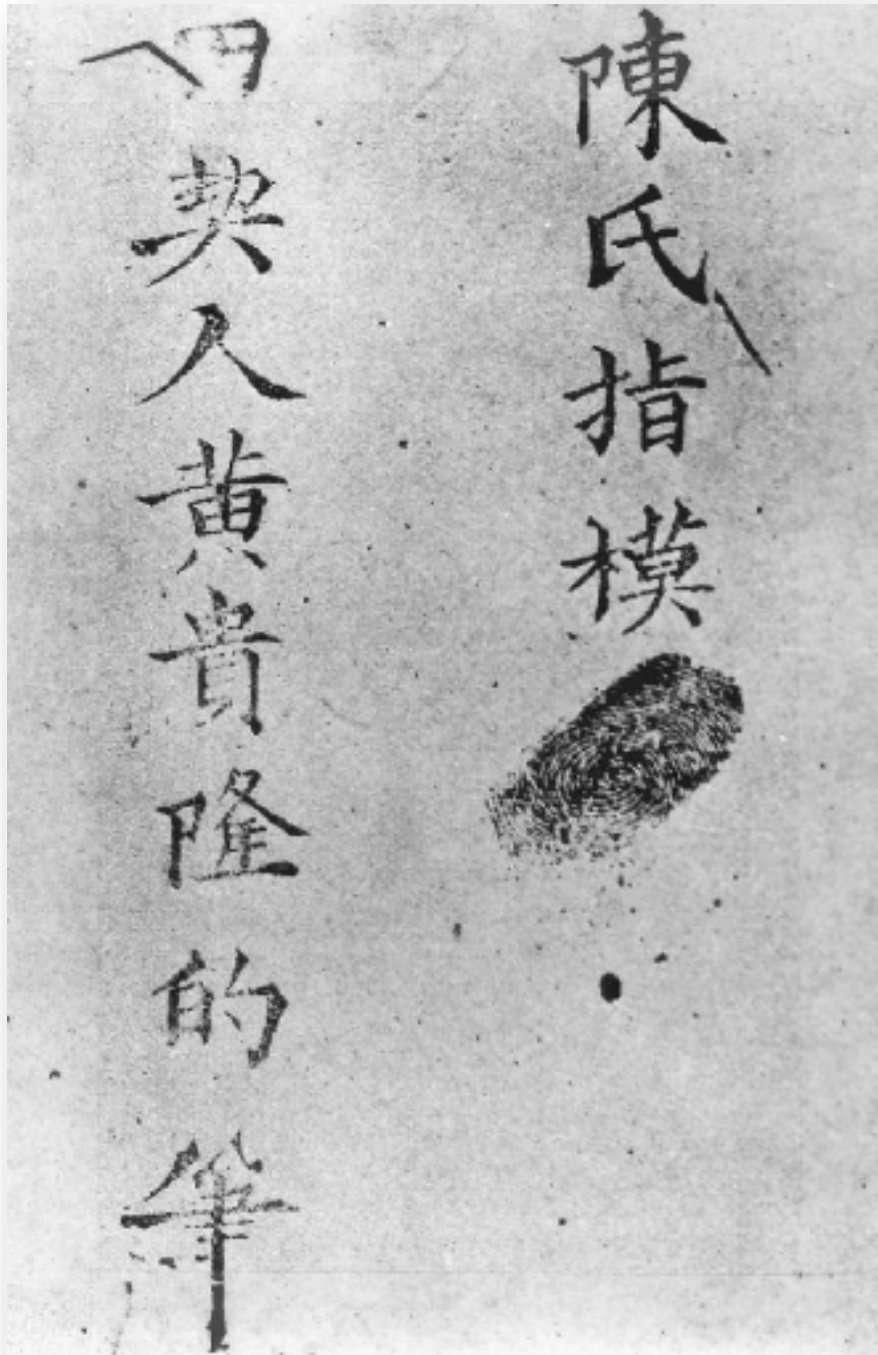 陳氏指模
契人黃貴隆的筆